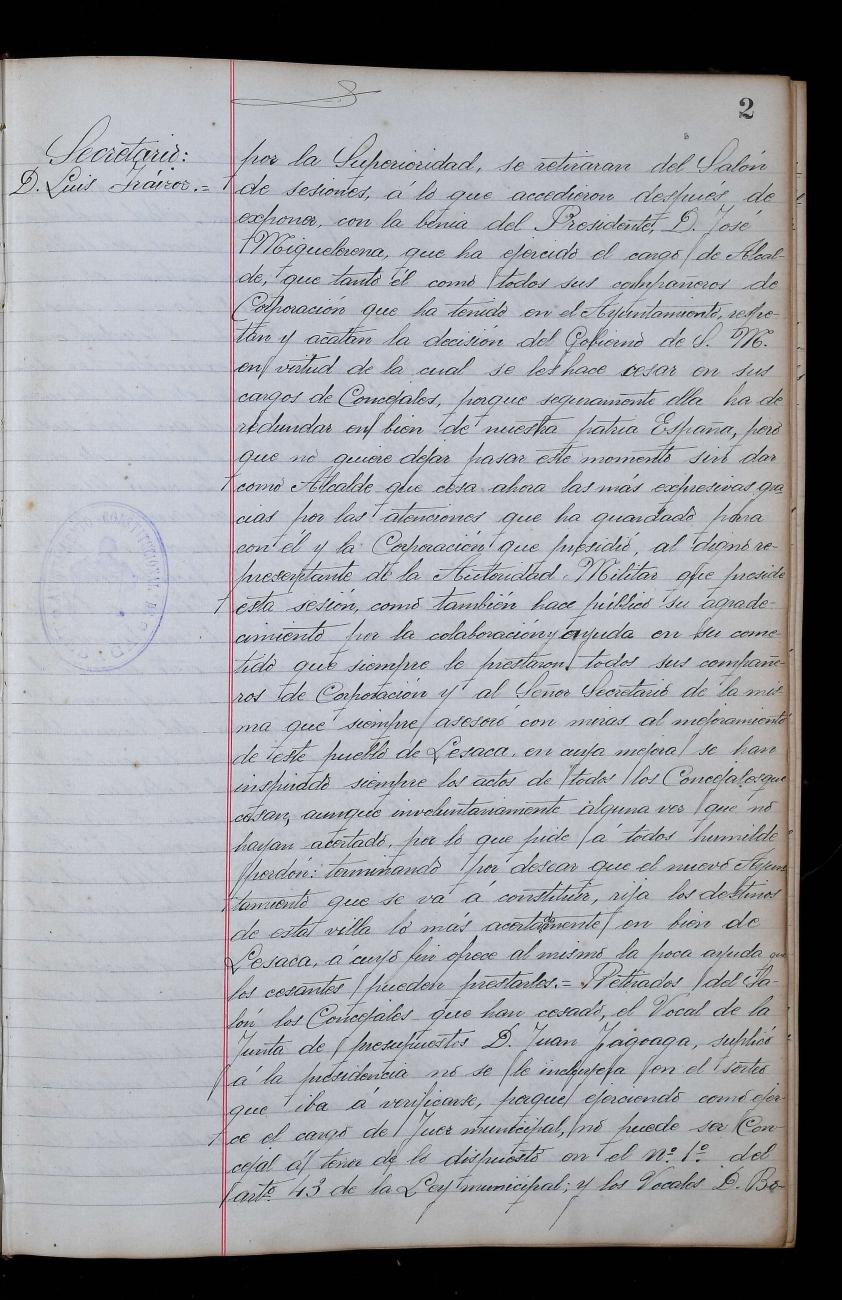 2
Secretario:
D. Luis Iráizoz.=
por la Superioridad, se retiraran del Salón
de sesiones, á lo que accedieron después de
exponer, con la benia del Presidente, D. José
Miguelerena, que ha ejercido el cargo de Alcal-
de, que tanto él como todos sus compañeros de
Corporación que ha tenido en el Ayuntamiento, respe-
tan y acatan la decisión del Gobierno de S. M.
en virtud de la cual se les hace cesar en sus
cargos de Concejales, porque seguramente ella ha de
redundar en bien de nuestra patria España, pero
que no quiere dejar pasar este momento sin dar
como Alcalde que cesa ahora las más expresivas gra
cias por las atenciones que ha guardado para
con él y la Corporación que presidió, al digno re-
presentante de la Autoridad Militar que preside
esta sesión, como también hace público su agrade-
cimiento por la colaboración y ayuda en su come-
tido que siempre le prestaron todos sus compañe-
ros de Corporación y al Señor Secretario de la mis-
ma que siempre asesoró con miras al mejoramiento
de este pueblo de Lesaca, en cuya mejora se han
inspirado siempre los actos de todos los Concejales que
cesan, aunque involuntariamente alguna vez que no
hayan acertado, por lo que pide á todos humilde
perdón: terminando por desear que el nuevo Ayun
tamiento que se va á constituir, rija los destinos
de esta villa lo más acertadamente en bien de
Lesaca, á cuyo fin ofrece al mismo la poca ayuda que
los cesantes pueden prestarles.= Retirados del Sa-
lón los Concejales que han cesado, el Vocal de la
Junta de presupuestos D. Juan Jagoaga, suplicó
á la presidencia no se le incluyera en el sorteo
que iba á verificarse, porque ejerciendo como ejer-
ce el cargo de Juez municipal, no puede ser Con-
cejal á tenor de lo dispuesto en el nº 1º del
artº 43 de la Ley municipal; y los Vocales D. Be-